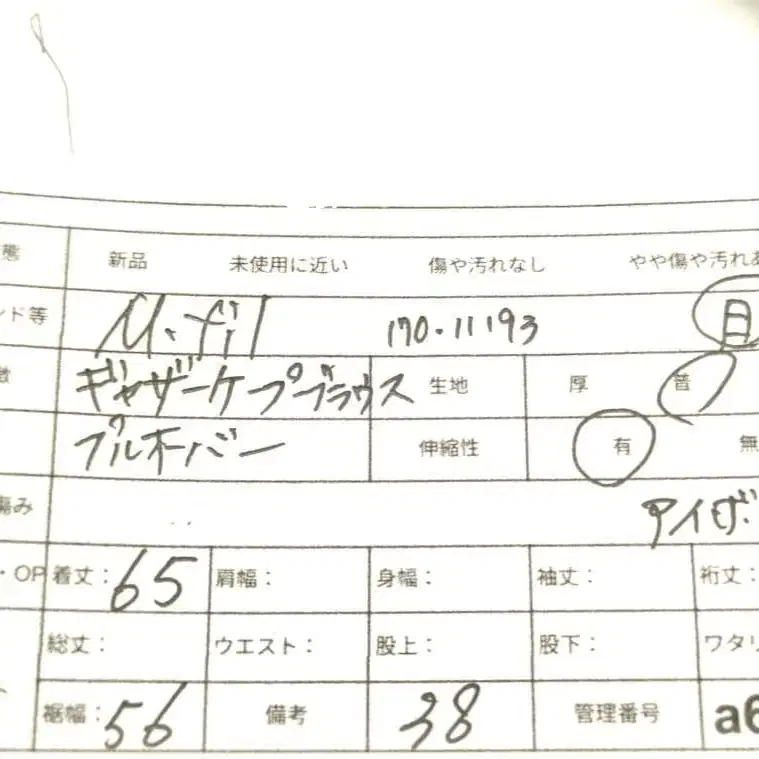 態 新品 未使用に近い 傷や汚れなし やや傷や汚れあ
ンド等 M.fil 170.11193 日
徴 ギャザーケープブラウス 生地 厚 普
プルオーバー 伸縮性 有 無
傷み アイボ
・OP 着丈: 65 肩幅: 身幅: 袖丈: 裄丈:
総丈: ウエスト: 股上: 股下: ワタリ
裾幅: 56 備考 38 管理番号 a6